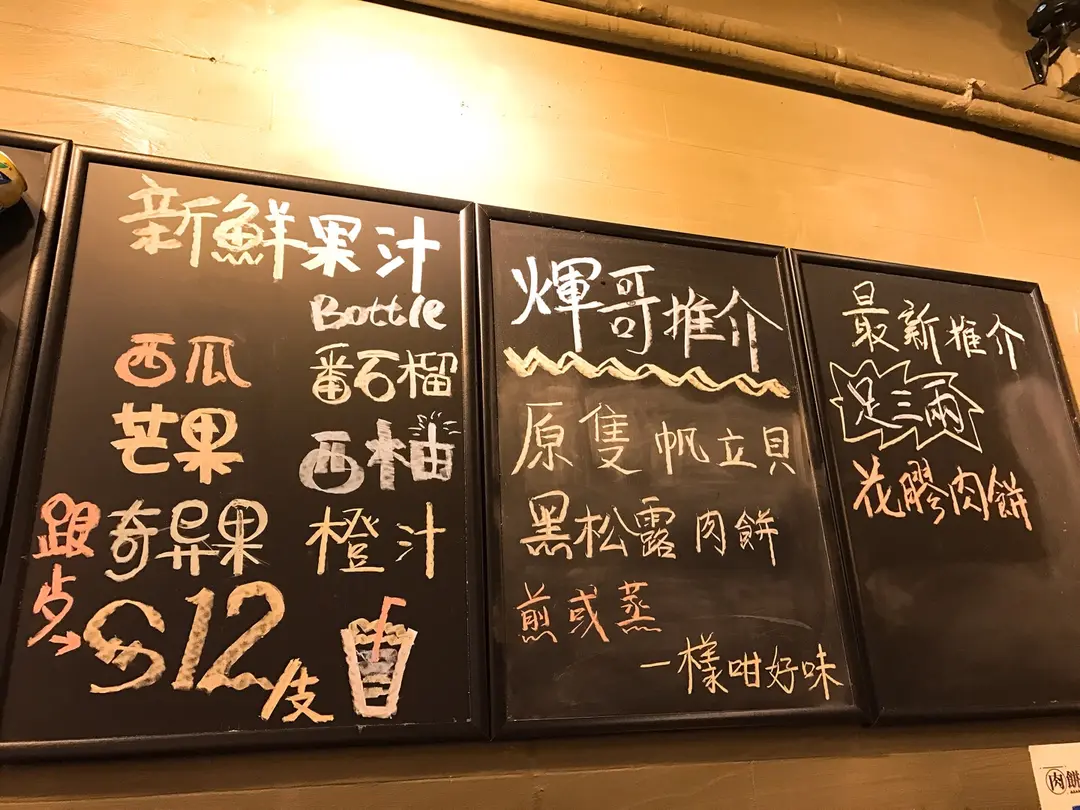 新鮮果汁
Bottle
西瓜 番石榴
芒果 西柚
奇异果 橙汁
跟步
$12/支
煇哥推介
原隻帆立貝
黑松露肉餅
煎或蒸
一樣咁好味
最新推介
足三兩
花膠肉餅
肉餅